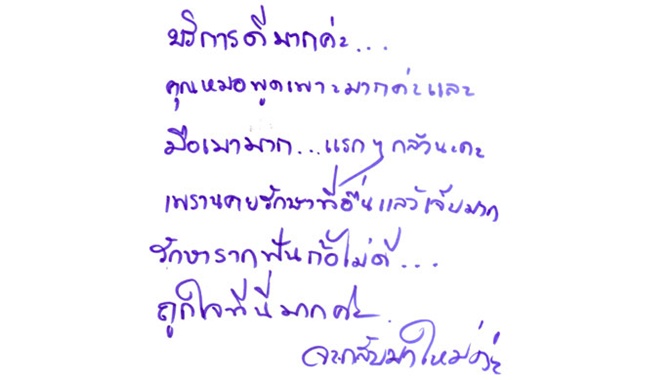 บริการดีมากค่ะ...
คุณหมอพูดเพราะมากค่ะและ
มือเบามาก...แรกๆ กลัวนะคะ
เพราะเคยรักษาที่อื่นแล้วเจ็บมาก
รักษารากฟันก็ไม่ดี...
ถูกใจที่นี่มากค่ะ
จะกลับมาใหม่ค่ะ